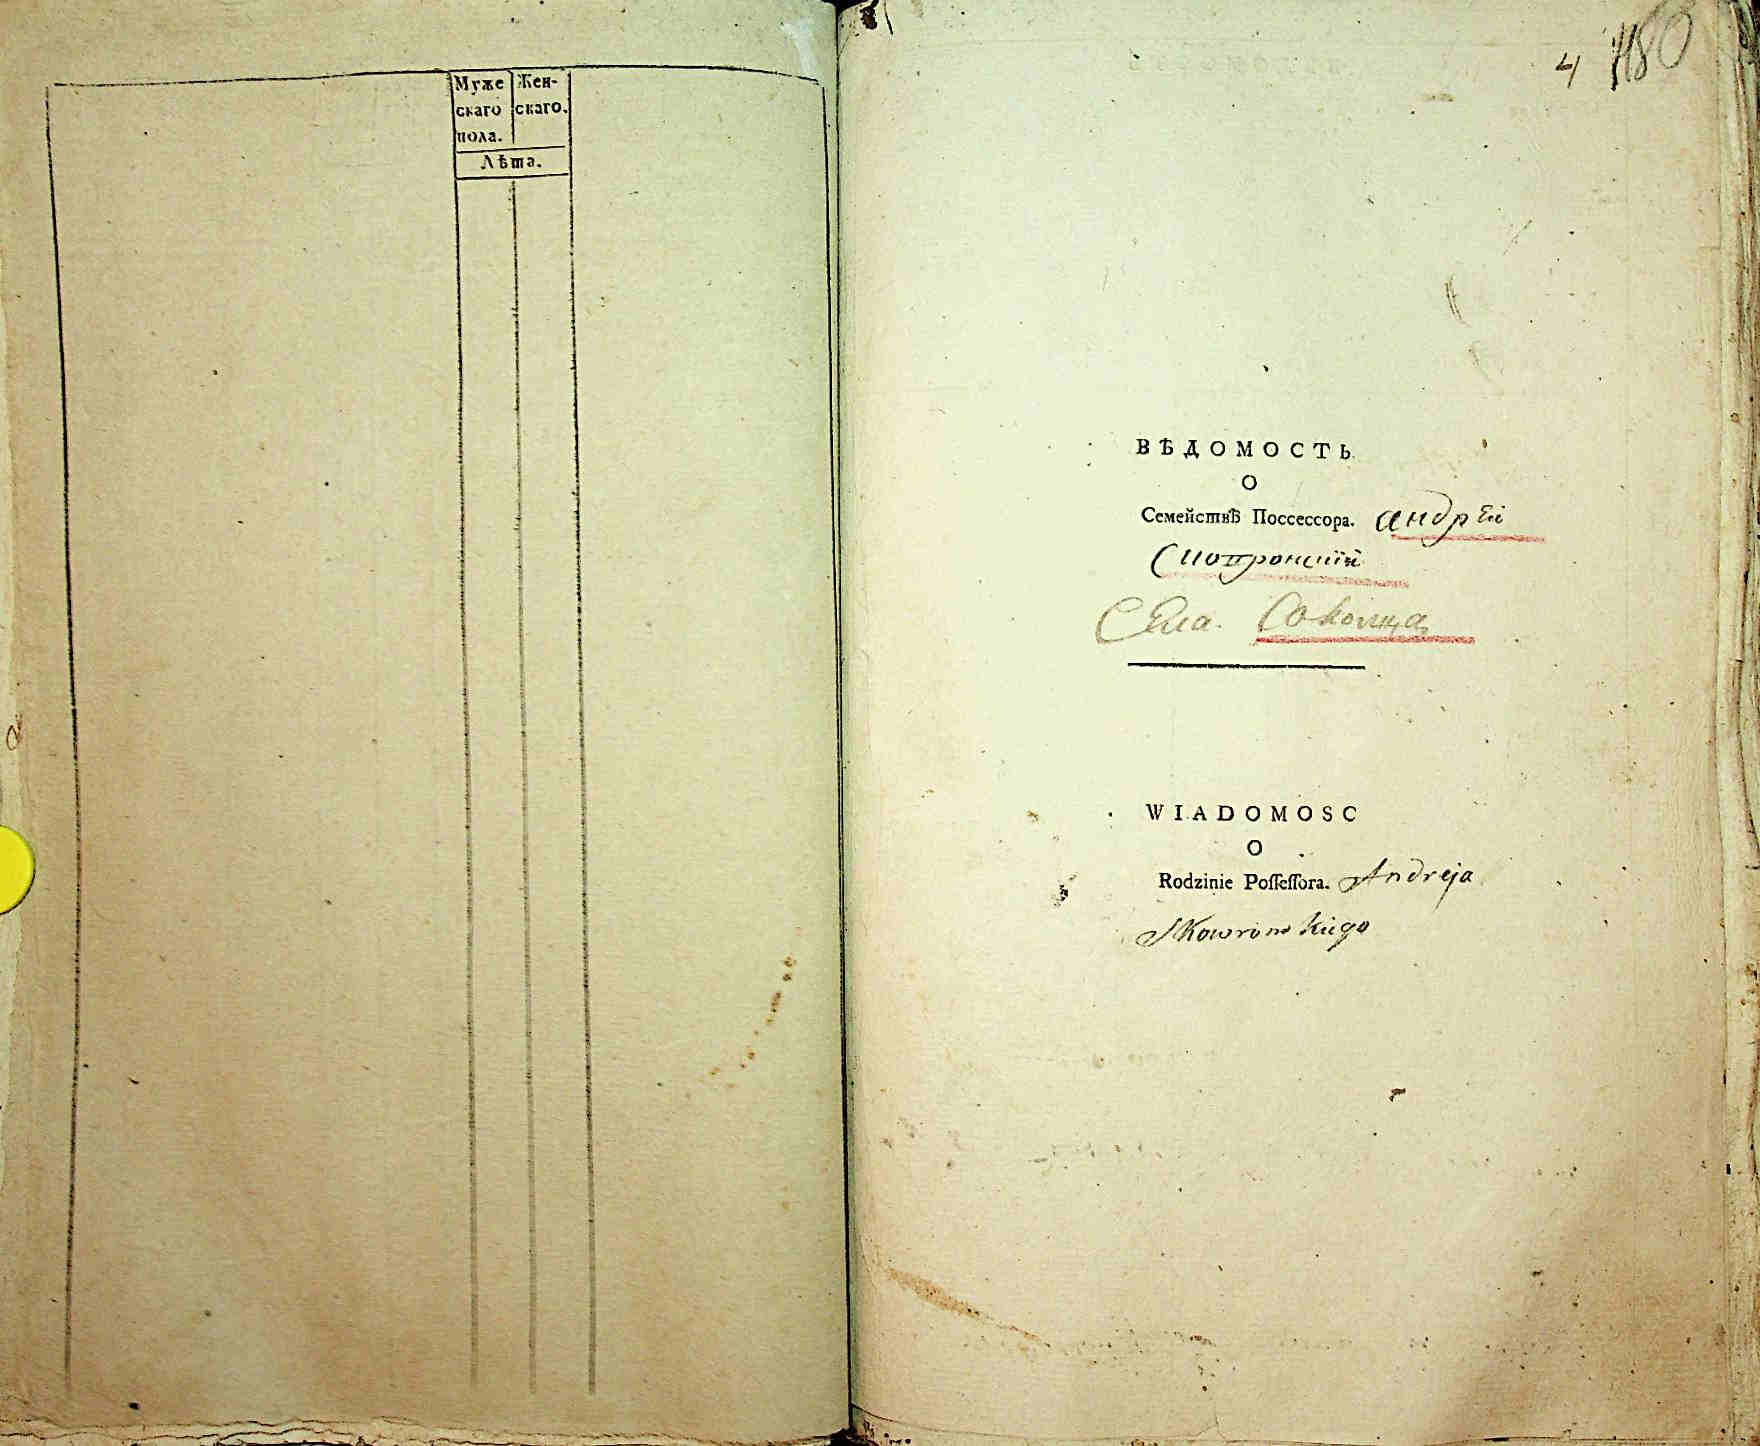 Муже Жен-
скаго скаго.
пола.
Лѣта.
4 480
ВѢДОМОСТЬ
О
Семействѣ Поссессора. Андрей
Сковронский
Села. Соколца
WIADOMOSC
O
Rodzinie Poſſeſſora. Andreja
Skowronskiego